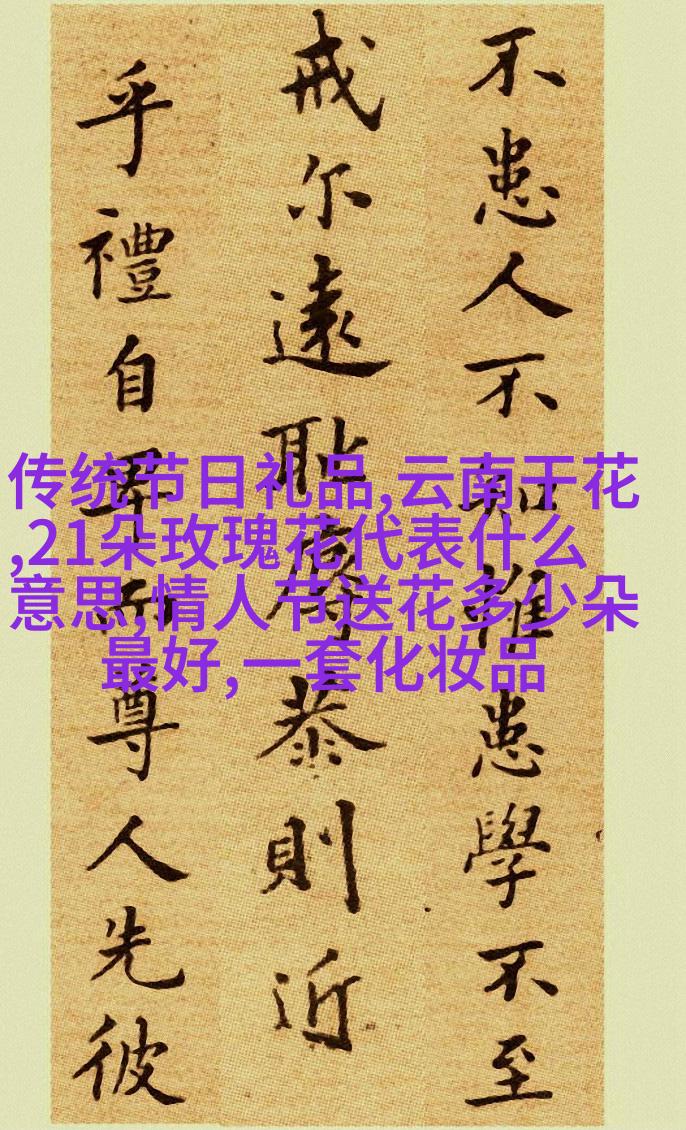 不患人不知惟患學不至
戒尔遠恥辱恭則近
乎禮自卑而尊人先彼
传统节日礼品,云南干花
,21朵玫瑰花代表什么
意思,情人节送花多少朵
最好,一套化妆品